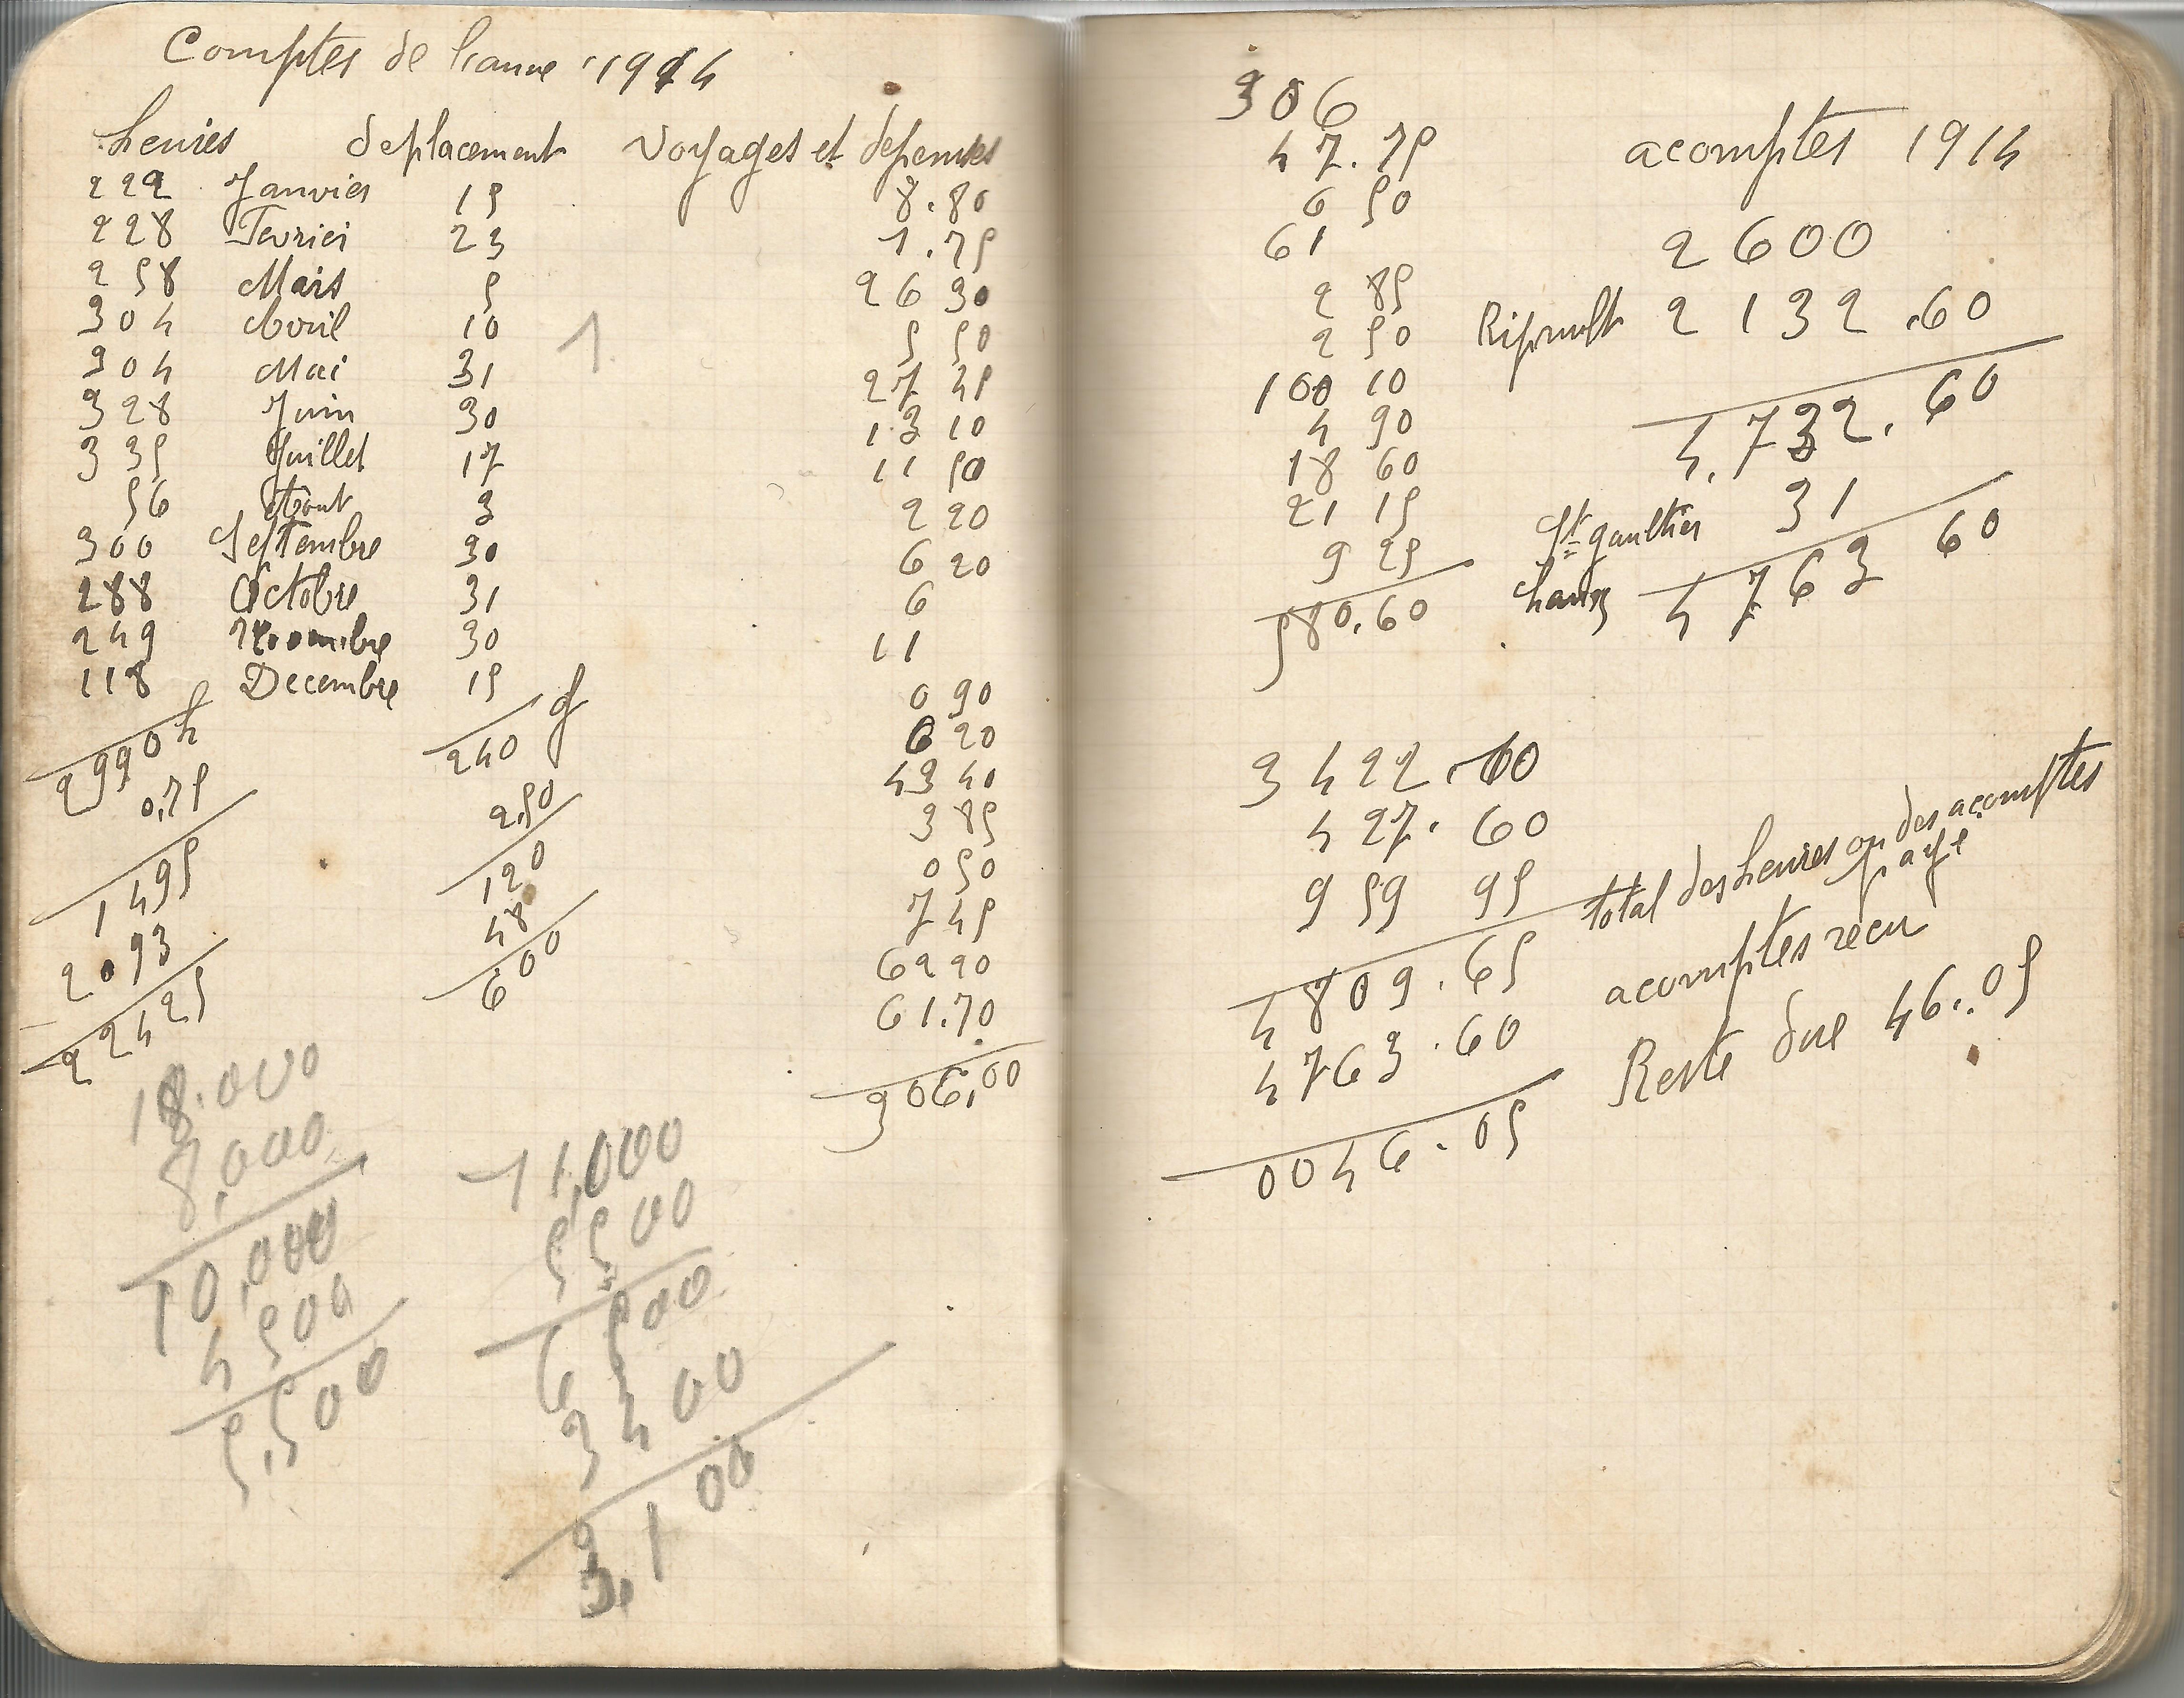 Comptes de l'anne 1914
heures deplacement Voyages et depenses
222 Janvier 15 8.80
228 Fevrier 23 1.75
258 Mars 5 26 30
304 Avril 10 5 50
304 Mai 31 27 45
328 Juin 30 13 10
335 Juillet 17 11 50
56 Aout 3 2 20
300 Septembre 30 6 20
288 Octobre 31 6
249 Novembre 30 11
118 Decembre 15 0 90
2990 h 240 j 6 20
0.75 2.50 43 40
1495 120 3 85
2093 48 0 50
2242 5 600 7 45
62 20
61.70
306.00
1
18.000
8.000
10,000
4 500
5.500
11,000
5500
6 500
3400
3.100
306
47.75
6 50
61
2 85
2 50
100 10
4 90
18 60
21 15
9 25
580.60
acomptes 1914
2600
Ripault 2132.60
4.732.60
St gaultier 31
4763 60
3422.60
427.60
959 95 total des heures ou des acomptes
paye
4809.65
4763.60 acomptes recu
0046.05 Reste due 46.05